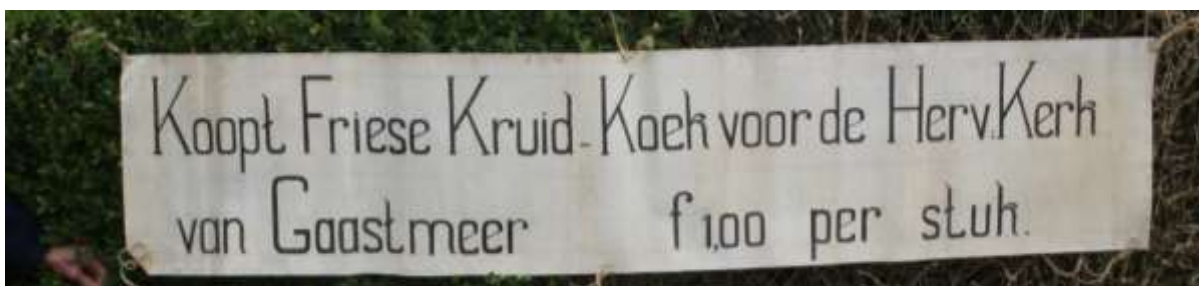 Koopt Friese Kruid-Koek voor de Herv. Kerk
van Gaastmeer f 1,00 per stuk.